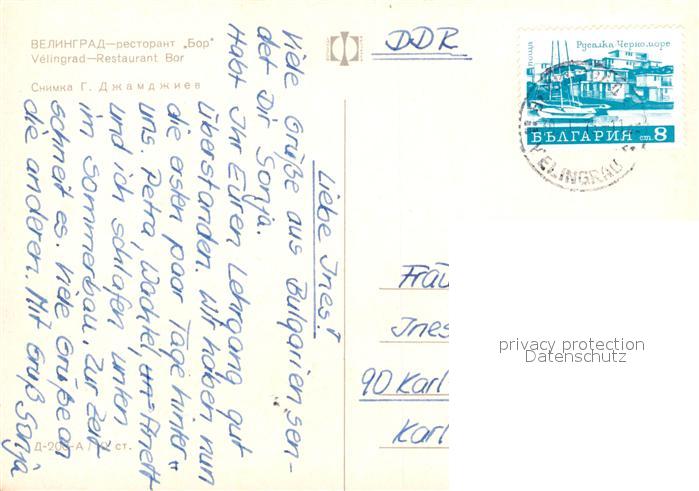 ВЕЛИНГРАД—ресторант „Бор"
Vélingrad—Restaurant Bor
Снимка Г. Джамджиев
Liebe Ines!
Viele Grüße aus Bulgarien sen-
det Dir Sonja.
Habt Ihr Euren Lehrgang gut
überstanden. Wir haben nun
die ersten paar Tage hinter
uns. Petra, Wachtel, Anett
und ich schlafen unten
im Sommerbau. Zur Zeit
schneit es. Viele Grüße an
die anderen. Mit Gruß Sonja
Д-208-А / ст.
DDR
поща
Русалка Черноморе
БЪЛГАРИЯ ст. 8
VELINGRAD
Fräu
Ines
90 Karl
Karl
privacy protection
Datenschutz